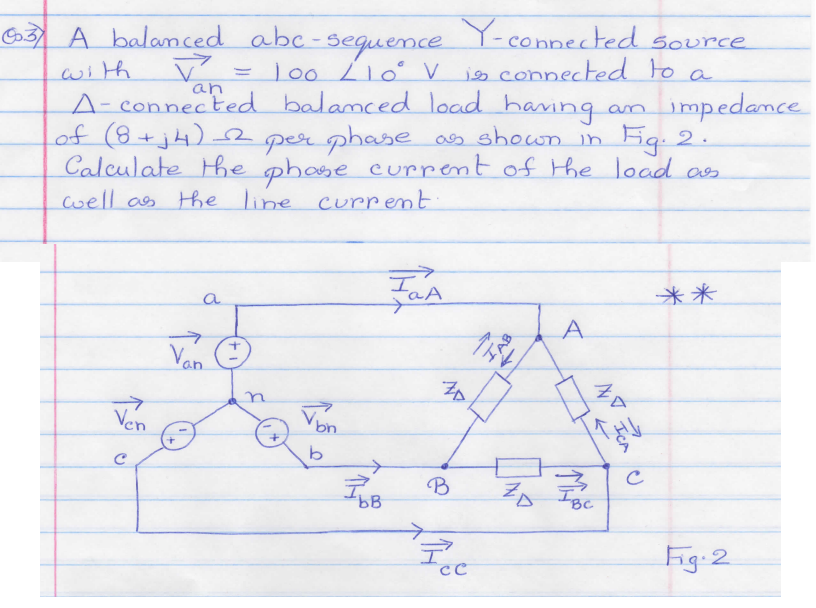 Q3) A balanced abc-sequence Y-connected source
with V⃗an = 100 ∠10° V is connected to a
Δ-connected balanced load having an impedance
of (8+j4) Ω per phase as shown in Fig. 2.
Calculate the phase current of the load as
well as the line current.
I⃗aA
**
a
A
V⃗an
+
-
I⃗AB
ZΔ
ZΔ
I⃗CA
n
V⃗cn
V⃗bn
+ -
- +
c
b
B
C
I⃗bB
ZΔ
I⃗BC
I⃗cC
Fig. 2